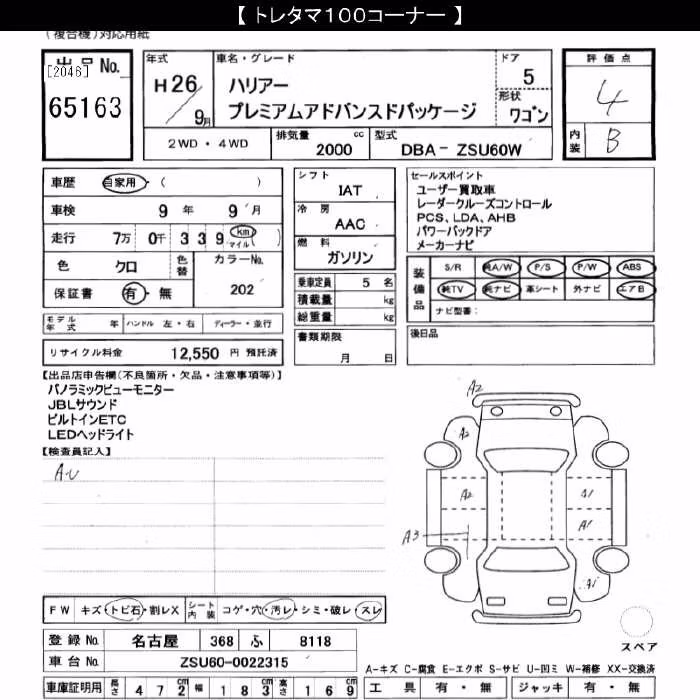 【 トレタマ100コーナー 】
(複合機)対応用紙
出品No.
[2046]
65163
年式
H26/9月
車名・グレード
ハリアー
プレミアムアドバンスドパッケージ
ドア
5
形状
ワゴン
評価点
4
内装
B
2WD ・ 4WD
排気量
2000 cc
型式
DBA- ZSU60W
車歴 自家用・( )
車検 9 年 9 月
走行 7万 0千 3 3 9 km マイル ( )
色 クロ
色替
カラーNo.
202
保証書 有・無
モデル年式 年
ハンドル 左・右
ディーラー・並行
リサイクル料金 12,550 円 預託済
シフト
IAT
冷房
AAC
燃料
ガソリン
乗車定員 5 名
積載量 kg
総重量 kg
書類期限
月 日
セールスポイント
ユーザー買取車
レーダークルーズコントロール
PCS、LDA、AHB
パワーバックドア
メーカーナビ
装備品
S/R 純A/W P/S P/W ABS
純TV 純ナビ 革シート 外ナビ エアB
ナビ型番:
後日品
【出品店申告欄(不良箇所・欠品・注意事項等)】
パノラミックビューモニター
JBLサウンド
ビルトインETC
LEDヘッドライト
【検査員記入】
A-U
A2
A2
A2
A1
A3
A1
A1
スペア
FW キズ・トビ石・割レX
シート内装 コゲ・穴・汚レ・シミ・破レ・スレ
登録No. 名古屋 368 ふ 8118
車台No. ZSU60-0022315
車庫証明用 長さ 4 7 2 cm 幅 1 8 3 cm 高さ 1 6 9 cm
A-キズ C-腐食 E-エクボ S-サビ U-凹ミ W-補修 XX-交換済
工具 有・無 ジャッキ 有・無